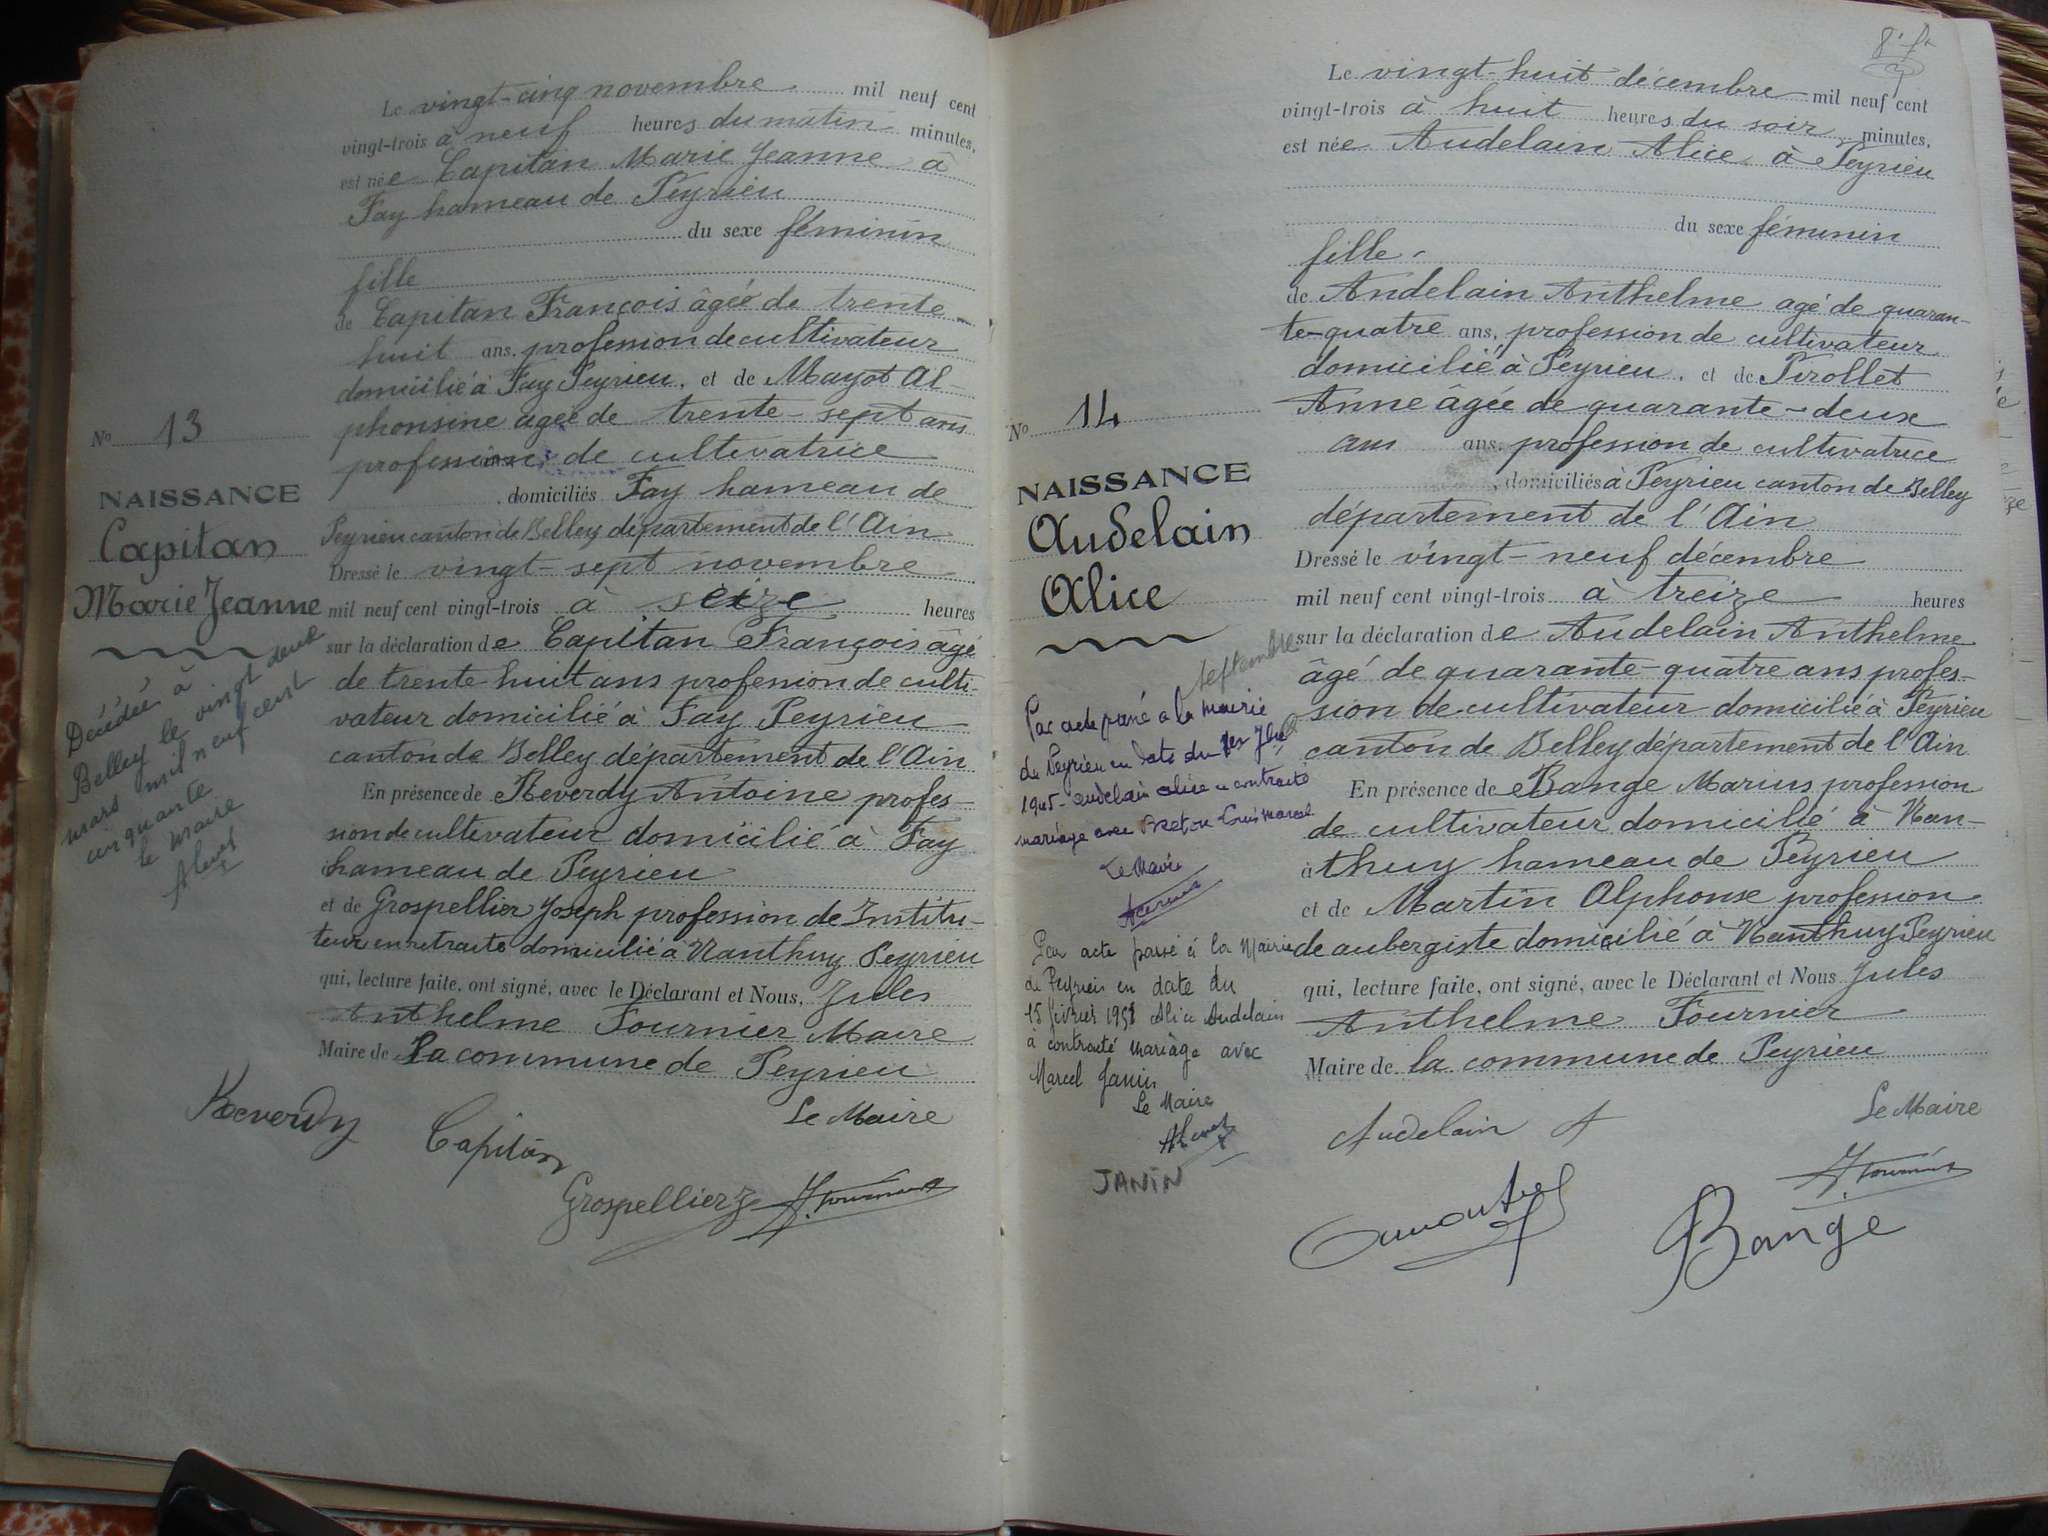 Le vingt-cinq novembre mil neuf cent
vingt-trois à neuf heures du matin minutes,
est née Capitan Marie Jeanne à
Fay hameau de Peyrieu
du sexe féminin
fille
de Capitan François âgée de trente-
huit ans, profession de cultivateur
domicilié à Fay Peyrieu, et de Mayot Al-
phonsine agée de trente-sept ans
profession de cultivatrice
domiciliés Fay hameau de
Peyrieu canton de Belley département de l'Ain
Dressé le vingt-sept novembre
mil neuf cent vingt-trois à seize heures
sur la déclaration de Capitan François âgé
de trente huit ans profession de culti-
vateur domicilié à Fay Peyrieu
canton de Belley département de l'Ain
En présence de Reverdy Antoine profes-
sion de cultivateur domicilié à Fay
hameau de Peyrieu
et de Grospellier Joseph profession de Institu-
teur en retraite domicilié à Nanthuy Peyrieu
qui, lecture faite, ont signé, avec le Déclarant et Nous, Jules
Anthelme Fournier Maire
Maire de La commune de Peyrieu
Le Maire
Reverdy
Capitan
Grospellier J
J. Fournier
No 13
NAISSANCE
Capitan
Marie Jeanne
Décédée à
Belley le vingt deux
mars mil neuf cent
cinquante
le maire
Le vingt-huit décembre mil neuf cent
vingt-trois à huit heures du soir minutes,
est née Audelain Alice à Peyrieu
du sexe féminin
fille
de Andelain Anthelme agé de quaran-
te-quatre ans, profession de cultivateur
domicilié à Peyrieu, et de Pirollet
Anne âgée de quarante-deux
ans ans, profession de cultivatrice
domiciliés à Peyrieu canton de Belley
département de l'Ain
Dressé le vingt-neuf décembre
mil neuf cent vingt-trois à treize heures
sur la déclaration de Audelain Anthelme
âgé de quarante-quatre ans profes-
sion de cultivateur domicilié à Peyrieu
canton de Belley département de l'Ain
En présence de Bange Marius profession
de cultivateur domicilié à Nan-
à thuy hameau de Peyrieu
et de Martin Alphonse profession
de aubergiste domicilié à Nanthuy Peyrieu
qui, lecture faite, ont signé, avec le Déclarant et Nous Jules
Anthelme Fournier
Maire de la commune de Peyrieu
Le Maire
Audelain A
J. Fournier
Bange
No 14
NAISSANCE
Audelain
Alice
septembre
Par acte passé à la mairie
de Peyrieu en date du 1er 7bre
1945 - audelain alice a contracté
mariage avec Breton Louis marcel
Le Maire
Par acte passé à la Mairie
de Peyrieu en date du
15 février 1958 Alice Audelain
à contracté mariage avec
Marcel Janin
Le Maire
JANIN